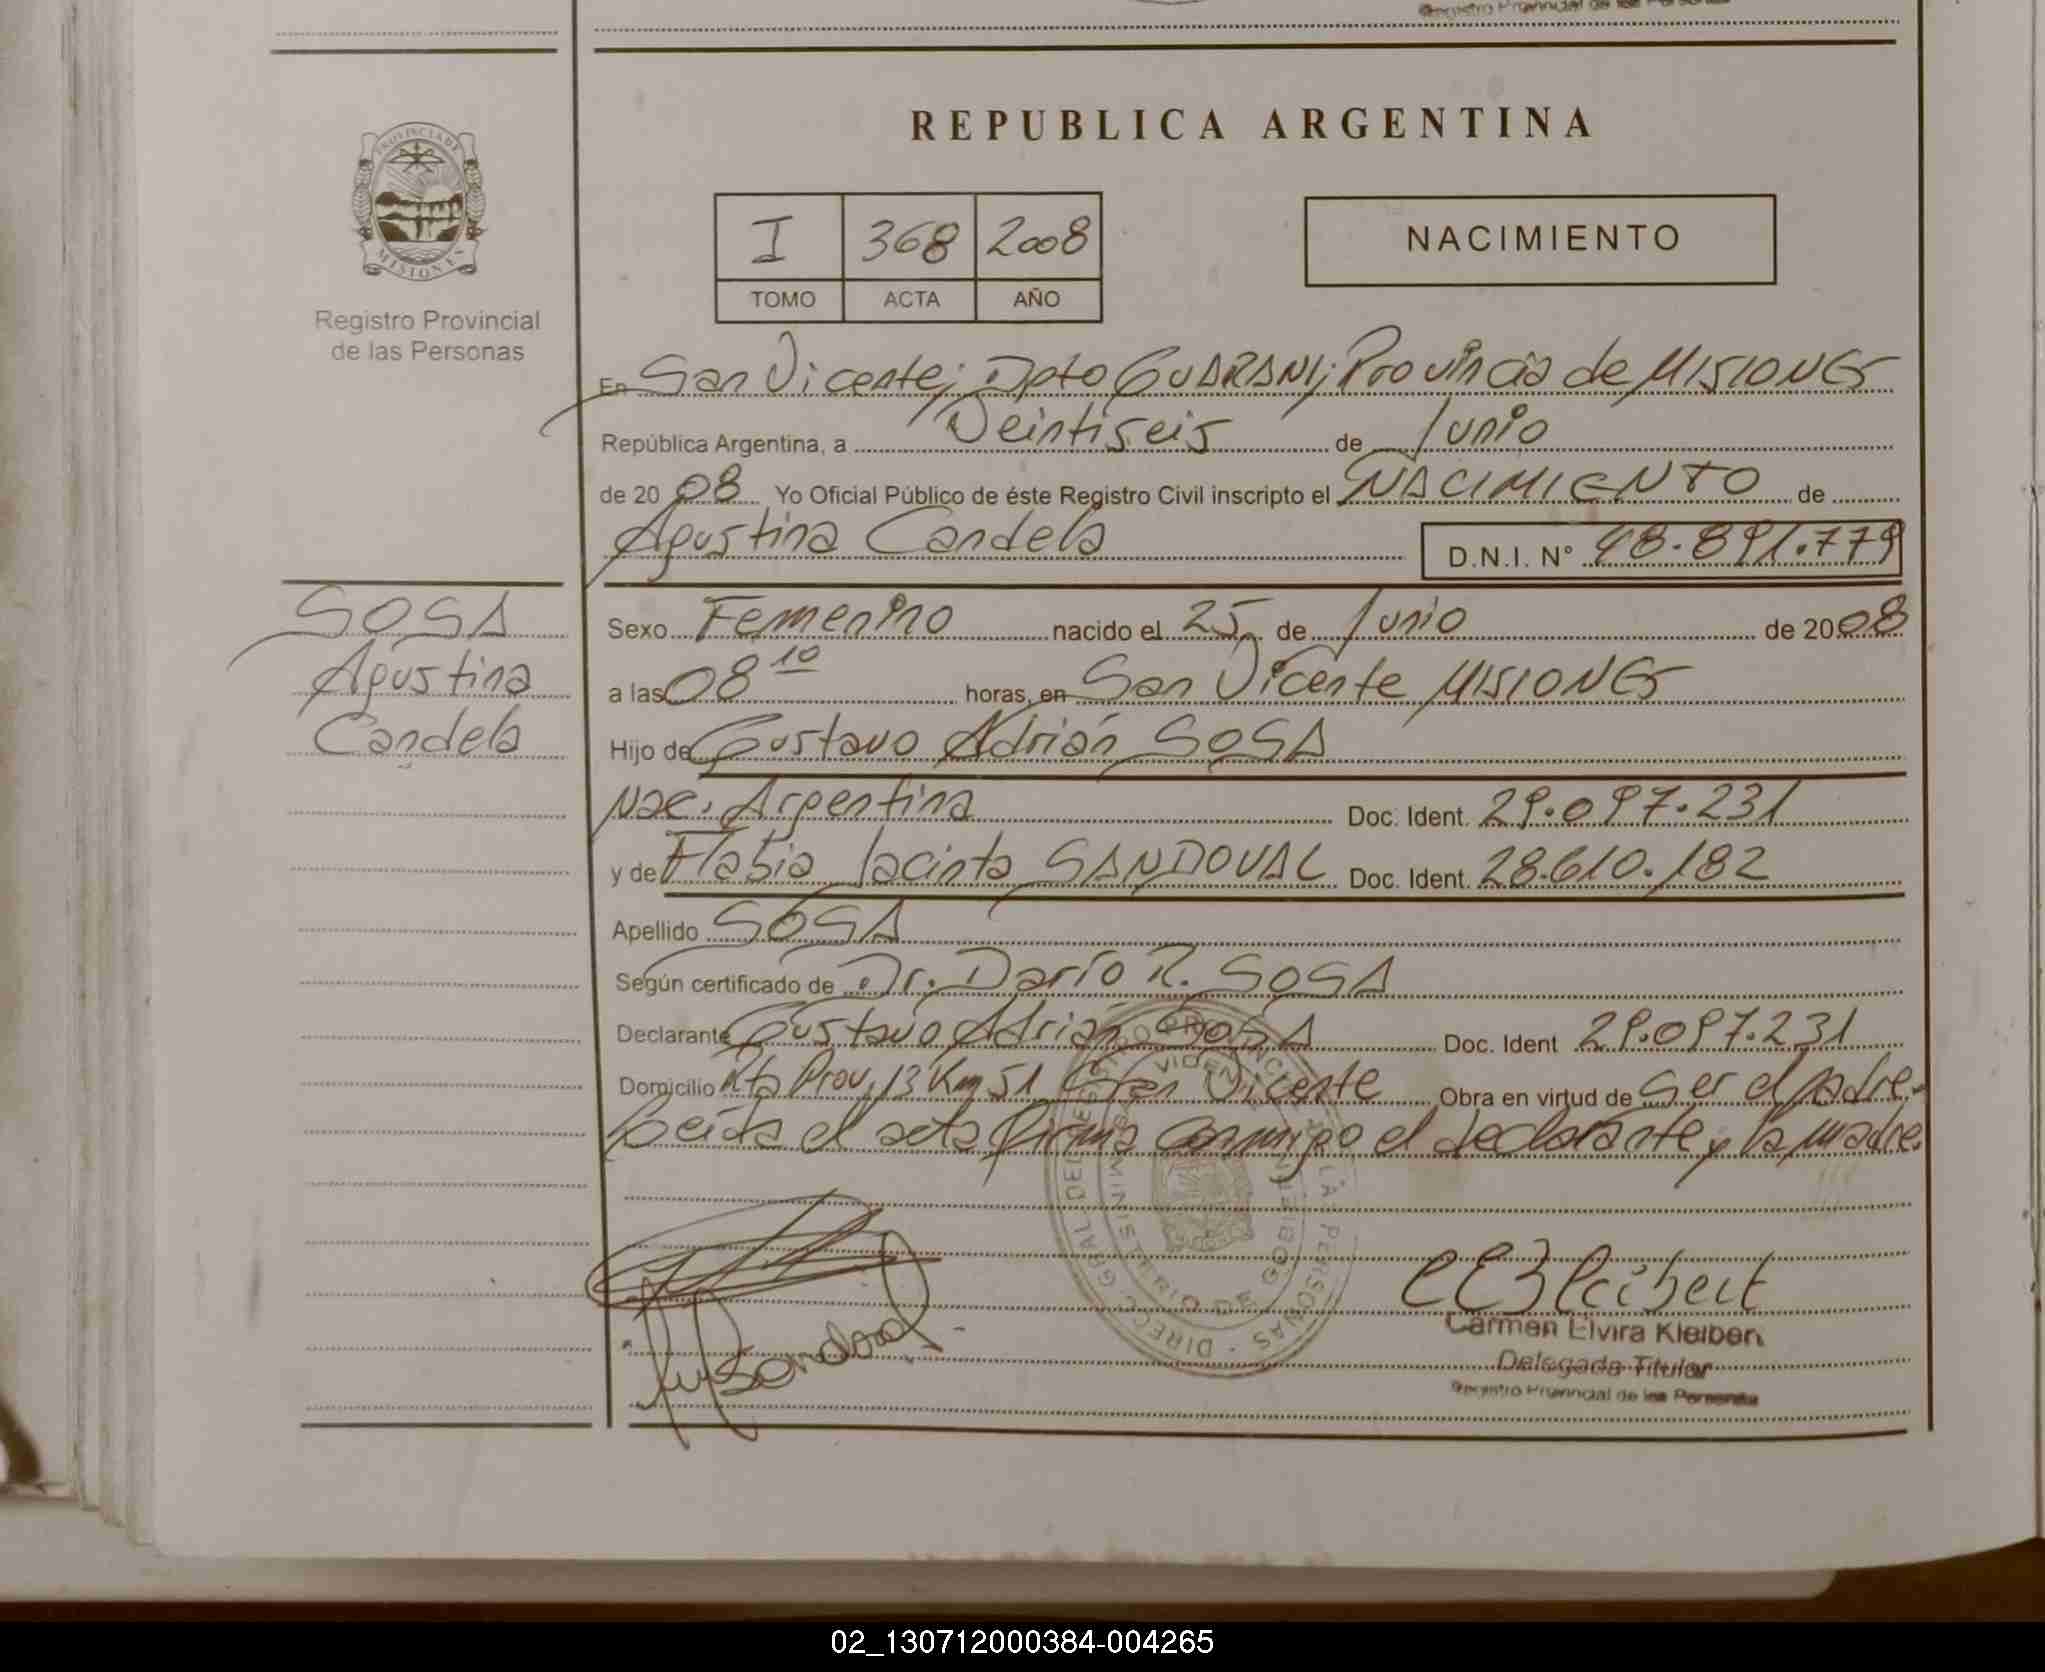 Registro Provincial de las Personas
PROVINCIA DE
MISIONES
Registro Provincial
de las Personas
REPUBLICA ARGENTINA
I 368 2008
TOMO ACTA AÑO
NACIMIENTO
En San Vicente; Dpto GUARANI; Provincia de MISIONES
República Argentina, a Veintiseis de Junio
de 20 08 Yo Oficial Público de éste Registro Civil inscripto el NACIMIENTO de
Agustina Candela D.N.I. N° 48.891.779
SOSA
Agustina
Candela
Sexo Femenino nacido el 25 de Junio de 20 08
a las 08 10 horas, en San Vicente MISIONES
Hijo de Gustavo Adrián SOSA
Nac. Argentina Doc. Ident. 29.097.231
y de Flabia Jacinta SANDOVAL Doc. Ident. 28.610.182
Apellido SOSA
Según certificado de Dr. Darío R. SOSA
Declarante Gustavo Adrián SOSA Doc. Ident 29.097.231
Domicilio Rta Prov. 13 Km 51 San Vicente Obra en virtud de ser el padre.
Leída el acta firma conmigo el declarante y la madre.
DIREC. GRAL DEL REGISTRO PROVINCIAL DE LAS PERSONAS
MINISTERIO DE GOBIERNO
Sandoval
Carmen Elvira Kleiben
Delegada Titular
Registro Provincial de las Personas
02_130712000384-004265